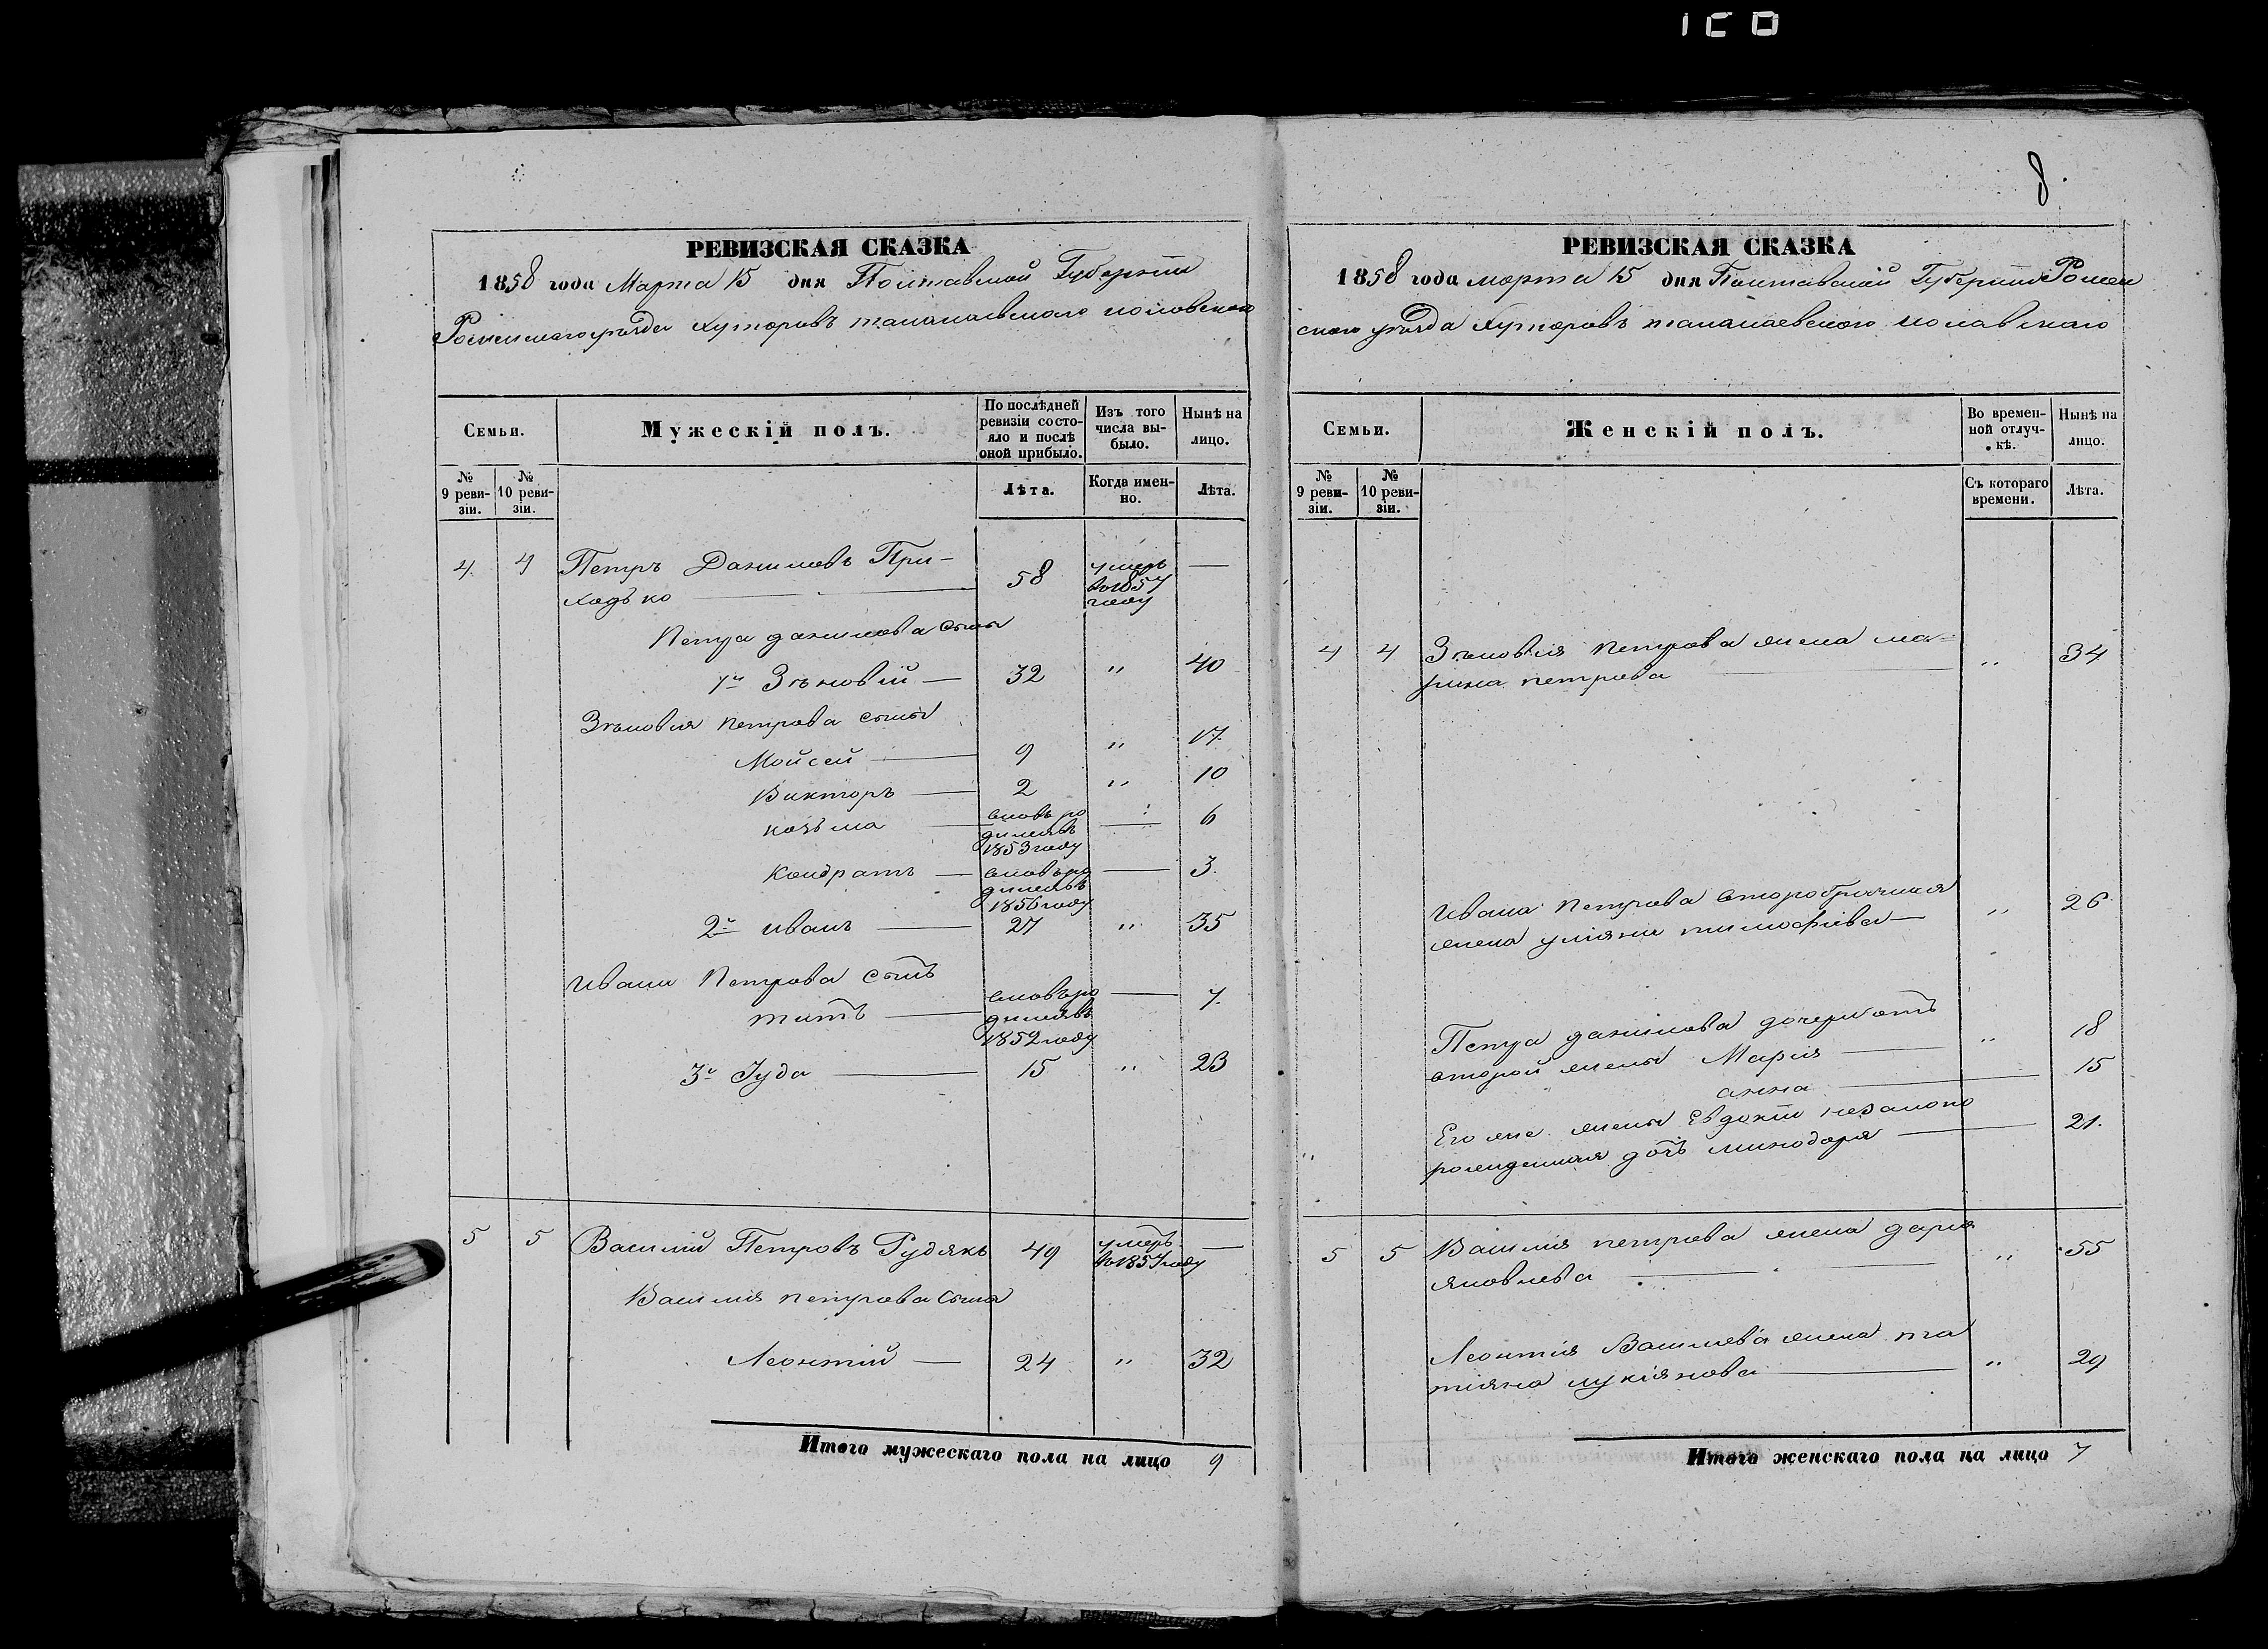 8.
РЕВИЗСКАЯ СКАЗКА
1858 года Марта 15 дня Полтавской Губерніи
Роменскаго уѣзда Хуторовъ
Семьи.
Мужескій полъ.
По послѣдней ревизіи состояло и послѣ оной прибыло.
Изъ того числа выбыло.
Нынѣ на лицо.
№ 9 ревизіи.
№ 10 ревизіи.
Лѣта.
Когда именно.
Лѣта.
4. 4 Петръ Даниловъ При-
ходько 58 умеръ въ 1857 году —
Петра данилова сыны
1й Зѣновій — 32 " 40
Зѣновія петрова сыны
Мойсей — 9 " 17.
Викторъ — 2 " 10
козьма — вновь родился въ 1853 году — 6
Кондратъ — вновь родился въ 1856 году — 3.
2й иванъ — 27 " 35
Ивана Петрова сынъ
титъ — вновь родился въ 1852 году — 7.
3й Іуда — 15 " 23
5 5 Василій Петровъ Рудякъ 49 умеръ въ 1857 году —
Василія петрова сынъ
Леонтій — 24 " 32
Итого мужескаго пола на лицо 9
РЕВИЗСКАЯ СКАЗКА
1858 года марта 15 дня Полтавской Губерніи Ромен
скаго уѣзда Хуторовъ
Семьи.
Женскій полъ.
Во временной отлучкѣ.
Нынѣ на лицо.
№ 9 ревизіи.
№ 10 ревизіи.
Съ котораго времени.
Лѣта.
4 4 Зѣновія петрова жена ма-
рина петрова — " 34
Ивана Петрова второбрачная
жена уліяна тимофіева — " 26
Петра данилова дочери отъ
второй жены Марія — " 18
анна — 15
Его же жены Евдокіи незаконо
рожденная дочь минодора — 21.
5 5 Василія петрова жена дарія
яковлева — " 55
Леонтія Васильева жена та
тіяна лукіянова — " 29
Итого женскаго пола на лицо 7